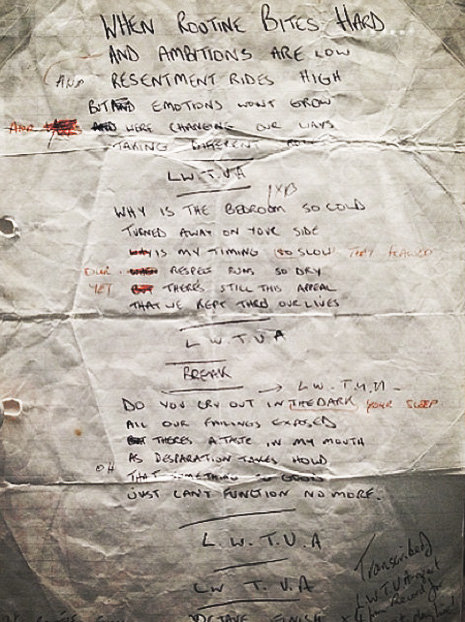 WHEN ROUTINE BITES HARD
AND AMBITIONS ARE LOW
AND RESENTMENT RIDES HIGH
BUT AND EMOTIONS WONT GROW
AND AND WERE CHANGING OUR WAYS
TAKING DIFFERENT
L.W.T.V.A
WHY IS THE BEDROOM SO COLD
TURNED AWAY ON YOUR SIDE
IS MY TIMING SO SLOW THAT FLAWED
OUR RESPECT RUNS SO DRY
YET BUT THERES STILL THIS APPEAL
THAT WE KEPT THRU OUR LIVES
L W T V A
BREAK
DO YOU CRY OUT IN THE DARK YOUR SLEEP
ALL OUR FAILINGS EXPOSED
BUT THERES A TASTE IN MY MOUTH
AS DESPARATION TAKES HOLD
OH THAT SOMETHING SO GOOD
JUST CANT FUNCTION NO MORE.
L.W.T.U.A
LW T.V.A
Transcribed